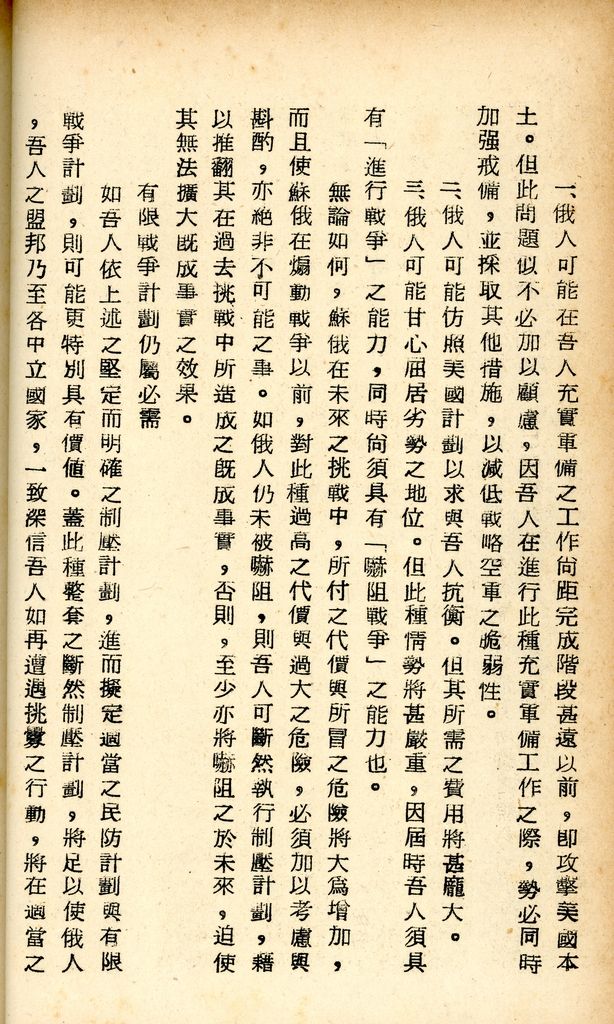 一、俄人可能在吾人充實軍備之工作尙距完成階段甚遠以前，卽攻擊美國本
土。但此問題似不必加以顧慮，因吾人在進行此種充實軍備工作之際，勢必同時
加强戒備，並採取其他措施，以減低戰略空軍之脆弱性。
二、俄人可能仿照美國計劃以求與吾人抗衡。但其所需之費用將甚龐大。
三、俄人可能甘心屈居劣勢之地位。但此種情勢將甚嚴重，因屆時吾人須具
有「進行戰爭」之能力，同時尙須具有「嚇阻戰爭」之能力也。
無論如何，蘇俄在未來之挑戰中，所付之代價與所冒之危險將大爲增加，
而且使蘇俄在煽動戰爭以前，對此種過高之代價與過大之危險，必須加以考慮與
斟酌，亦絕非不可能之事。如俄人仍未被嚇阻，則吾人可斷然執行制壓計劃，藉
以推翻其在過去挑戰中所造成之既成事實，否則，至少亦將嚇阻之於未來，迫使
其無法擴大既成事實之效果。
有限戰爭計劃仍屬必需
如吾人依上述之堅定而明確之制壓計劃，進而擬定適當之民防計劃與有限
戰爭計劃，則可能更特別具有價値。蓋此種整套之斷然制壓計劃，將足以使俄人
，吾人之盟邦乃至各中立國家，一致深信吾人如再遭遇挑釁之行動，將在適當之